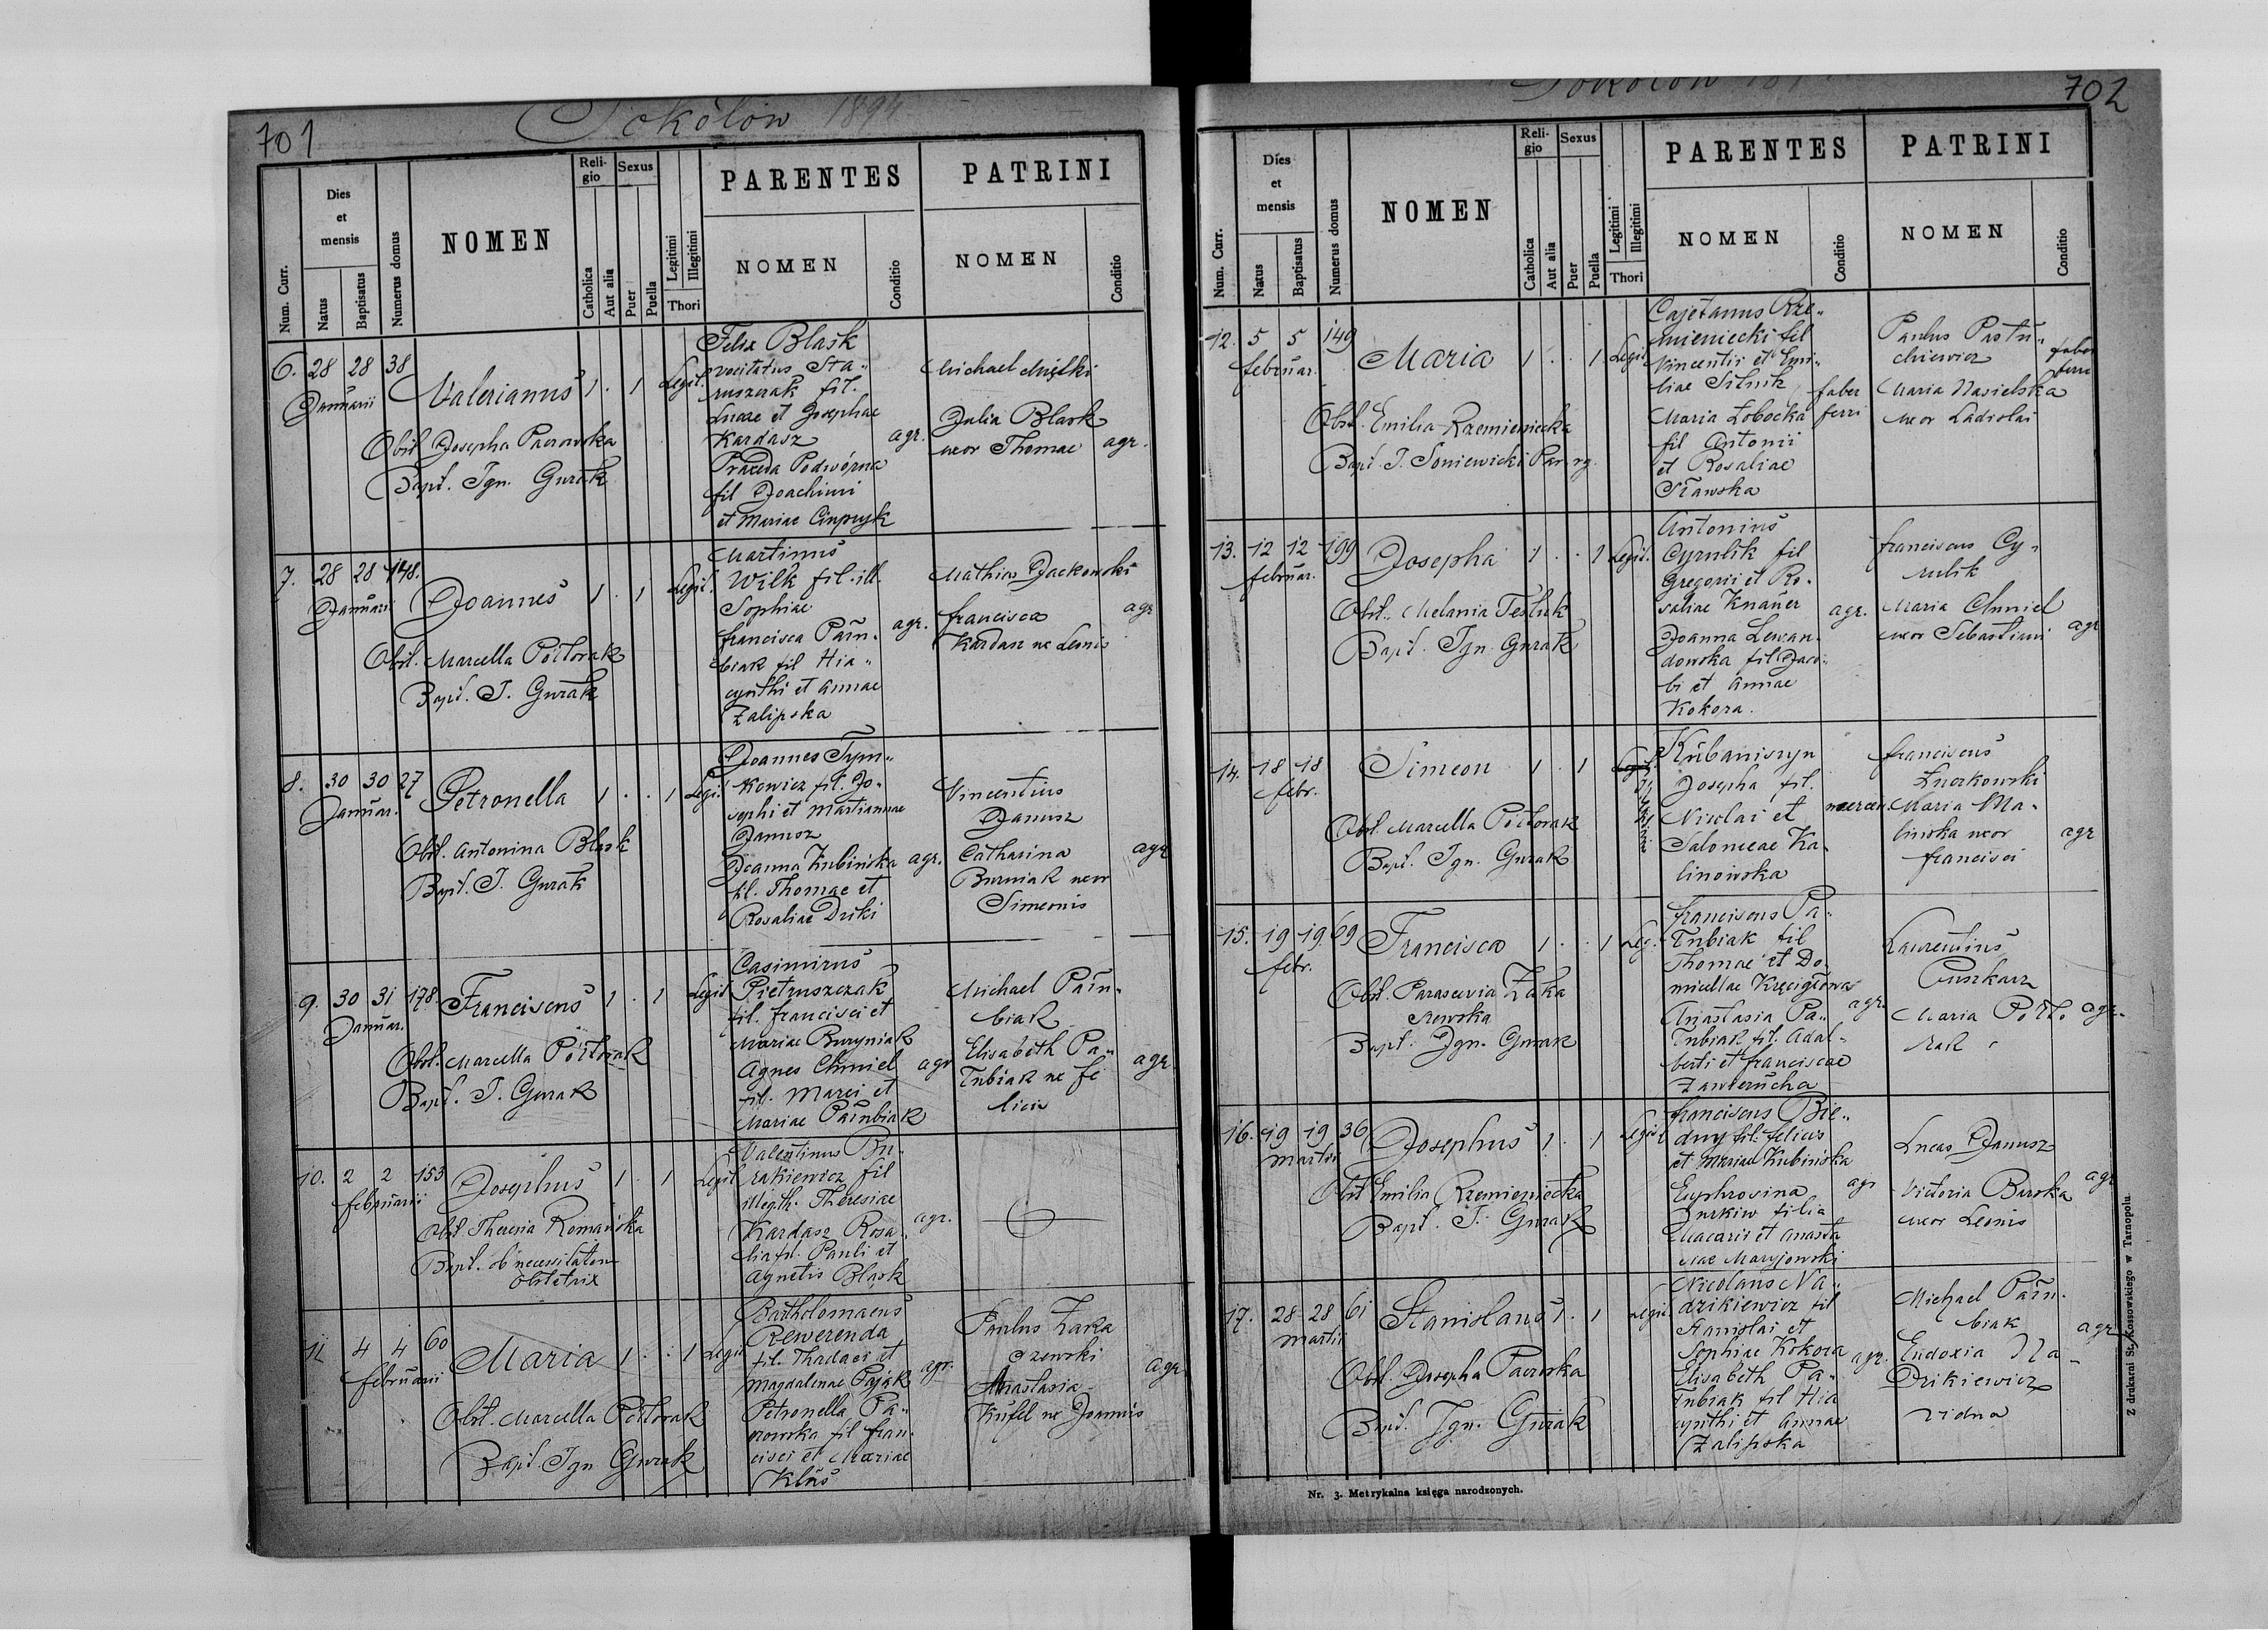 701
Sokołow 1894
Num. Curr.
Dies et mensis
Natus
Baptisatus
Numerus domus
NOMEN
Religio
Catholica
Aut alia
Sexus
Puer
Puella
Legitimi
Illegitimi
Thori
PARENTES
NOMEN
Conditio
PATRINI
NOMEN
Conditio
6. 28 28 38
Januarii
Valerianus 1 . 1 Legit.
Obst. Josepha Pacrowska
Bapt. Ign. Gurak
Felix Blask
vocitatus Sta„
ruszczak fil.
Lucae et Josephae
Kardasz
Praxeda Podwórna
fil Joachimi
et Mariae
agr.
Michael
Julia Blask
uxor Thomae
agr.
7. 28 28 148.
Januarii
Joannes 1 . 1 Legit.
Obst. Marcella Półtorak
Bapt. I. Gurak
Martinus
Wilk fil. ill.
Sophiae
francisca Pału„
biak fil Hia„
cynthi et Annae
Zalipska
agr.
Mathias Jackowski
francisca
Kardasz ux Leonis
agr
8. 30 30 27
Januar.
Petronella 1 . . 1 Legit
Obst. Antonina Blask
Bapt. I. Gurak
Joannes Tym„
kowicz fil. Jo„
sephi et Martiannae
Janusz
Joanna Kubinska
fil. Thomae et
Rosaliae Dziki
agr.
Vincentius
Janusz
Catharina
Burniak uxor
Simeonis
agr
9. 30 31 178.
Januar.
Franciscus 1 . 1 Legit
Obst. Marcella Półtorak
Bapt. I. Gurak
Casimirus
Pietruszczak
fil. francisci et
Mariae Buryniak
Agnes Chmiel
fil. Marci et
Mariae Pałubiak
agr
Michael Pału„
biak
Elisabeth Pa„
łubiak ux fe
licis
agr
10. 2 2 153
februarii
Josephus 1 . 1 Legit
Obst Theresia Romańska
Bapt. ob necessitatem
obstetrix
Valentinus Bu„
rakiewicz fil
illegth. Theresiae
Kardasz Rosa„
lia fil. Pauli et
Agnetis Blask
agr.
11 4 4 60
februarii
Maria 1 . . 1 Legit
Obst. Marcella Półtorak
Bapt. Ign Gurak
Bartholomaeus
Rewerenda
fil. Thadaei et
Magdalenae Pająk
Petronella Pa„
crowska fil fran„
cisci et Mariae
Klus
agr.
Paulus Zaka
szewski
Anastasia
Kufel ux Joannis
agr
702
Sokołow 189
Num. Curr.
Dies et mensis
Natus
Baptisatus
Numerus domus
NOMEN
Religio
Catholica
Aut alia
Sexus
Puer
Puella
Legitimi
Illegitimi
Thori
PARENTES
NOMEN
Conditio
PATRINI
NOMEN
Conditio
12. 5 5 149
februar.
Maria 1 . . 1 Legit
Obst. Emilia Rzemieniecka
Bapt. I. Soniewicki Par. rg.
Cajetanus Rze„
mieniecki fil
Vincentii et Emi„
liae Sitnik
Maria Łobocka
fil Antonii
et Rosaliae
Stawska
faber
ferri
Paulus Pastu„
chiewicz
Maria Nasielska
uxor Ladislai
faber
ferri
13. 12 12 199
februar.
Josepha 1 . . 1 Legit.
Obst. Melania Tesluk
Bapt. Ign. Gurak
Antonius
Cyrulik fil
Gregorii et Ro„
saliae Knauer
Joanna Lewan„
dowska fil Jaco„
bi et Annae
Kokora.
agr.
franciscus Cy„
rulik
Maria Chmiel
uxor Sebastiani
agr
14. 18 18
febr.
Simeon 1 . 1
Obst Marcella Półtorak
Bapt. Ign. Gurak
Kubaniszyn
Josepha fil.
Nicolai et
Salomeae Ka„
linowska
franciscus
Maria Ma„
linska uxor
francisci
agr
15. 19 19 69
febr.
Francisca 1 . . 1 Leg.
Obst. Parascevia Zaka
szewska
Bapt. Ign. Gurak
franciscus Pa„
łubiak fil
Thomae et Do„
micellae Kręcigłowa
Anastasia Pa„
łubiak fil. Adal„
berti et franciscae
Zawierucha
agr
Laurentius
Puszkarz
Maria Półto
rak
agr.
16. 19 19 36
Martii
Josephus 1 . 1 Legit
Obst Emilia Rzemieniecka
Bapt. I. Gurak
franciscus Bie„
dny fil. felicis
et Mariae Kubińska
Euphrosina
Jurkiw filia
Macarii et Anasta
siae Maryjowski
agr
Lucas Janusz
Victoria Burska
uxor Leonis
agr
17. 28 28 61
Martii
Stanislaus 1 . 1 Legit
Obst. Josepha Pacrowska
Bapt. Ign. Gurak
Nicolaus Na„
dzikiewicz fil
Stanislai et
Sophiae Kokora
Elisabeth Pa„
łubiak fil Hia
cynthi et Annae
Zalipska
agr.
Michael Pału„
biak
Eudoxia Na„
dzikiewicz
vidua
agr
Nr. 3. Metrykalna księga narodzonych.
Z drukarni St. Kossowskiego w Tarnopolu.